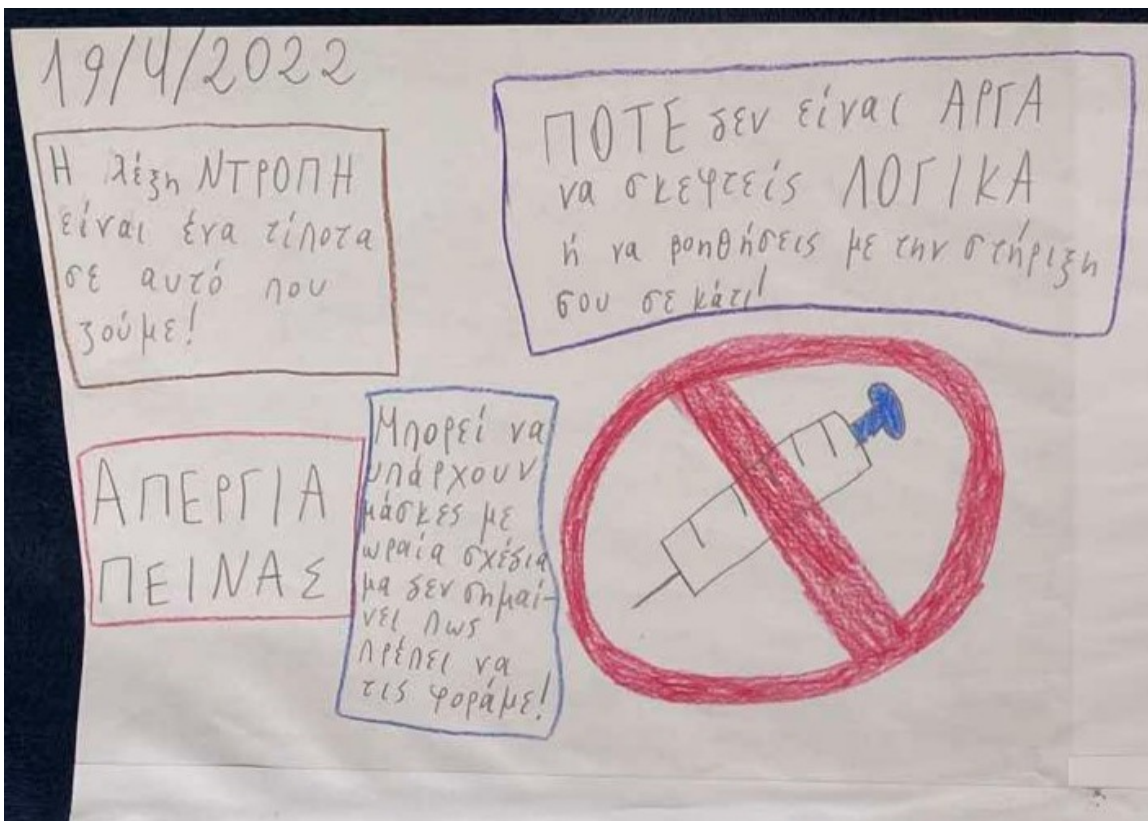 19/4/2022
Η λέξη ΝΤΡΟΠΗ
είναι ένα τίποτα
σε αυτό που
ζούμε!
ΠΟΤΕ δεν είναι ΑΡΓΑ
να σκεφτείς ΛΟΓΙΚΑ
ή να βοηθήσεις με την στήριξη
σου σε κάτι!
ΑΠΕΡΓΙΑ
ΠΕΙΝΑΣ
Μπορεί να
υπάρχουν
μάσκες με
ωραία σχέδια
μα δεν σημαί-
νει πως
πρέπει να
τις φοράμε!